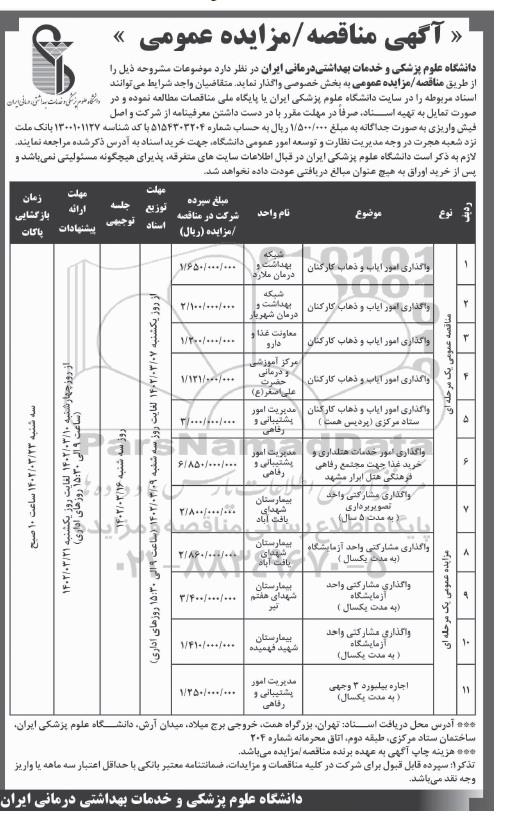 « آگهی مناقصه/مزایده عمومی »
دانشگاه علوم پزشکی و خدمات بهداشتی درمانی ایران
دانشگاه علوم پزشکی و خدمات بهداشتی‌درمانی ایران در نظر دارد موضوعات مشروحه ذیل را
از طریق مناقصه/مزایده عمومی به بخش خصوصی واگذار نماید. متقاضیان واجد شرایط می‌توانند
اسناد مربوطه را در سایت دانشگاه علوم پزشکی ایران یا پایگاه ملی مناقصات مطالعه نموده و در
صورت تمایل به تهیه اسـناد، صرفاً در مهلت مقرر با در دست داشتن معرفینامه از شرکت و اصل
فیش واریزی به صورت جداگانه به مبلغ ۱/۵۰۰/۰۰۰ ریال به حساب شماره ۵۱۵۴۳۰۳۲۰۴ با کد شناسه ۱۳۰۰۱۰۱۱۲۷ بانک ملت
نزد شعبه هجرت در وجه مدیریت نظارت و توسعه امور عمومی دانشگاه، جهت خرید اسناد به آدرس ذکر شده مراجعه نمایند.
لازم به ذکر است دانشگاه علوم پزشکی ایران در قبال اطلاعات سایت های متفرقه، پذیرای هیچگونه مسئولیتی نمی‌باشد و
پس از خرید اوراق به هیچ عنوان مبالغ دریافتی عودت داده نخواهد شد.
ردیف نوع موضوع نام واحد مبلغ سپرده شرکت در مناقصه /مزایده (ریال) مهلت توزیع اسناد جلسه توجیهی مهلت ارائه پیشنهادات زمان بازگشایی پاکات
مناقصه عمومی یک مرحله ای
۱ واگذاری امور ایاب و ذهاب کارکنان شبکه بهداشت و درمان ملارد ۱/۶۵۰/۰۰۰/۰۰۰
۲ واگذاری امور ایاب و ذهاب کارکنان شبکه بهداشت و درمان شهریار ۲/۱۰۰/۰۰۰/۰۰۰
۳ واگذاری امور ایاب و ذهاب کارکنان معاونت غذا و دارو ۱/۳۰۰/۰۰۰/۰۰۰
۴ واگذاری امور ایاب و ذهاب کارکنان مرکز آموزشی و درمانی حضرت علی‌اصغر(ع) ۱/۱۲۱/۰۰۰/۰۰۰
۵ واگذاری امور ایاب و ذهاب کارکنان ستاد مرکزی (پردیس همت) مدیریت امور پشتیبانی و رفاهی ۳/۰۰۰/۰۰۰/۰۰۰
۶ واگذاری امور خدمات هتلداری و خرید غذا جهت مجتمع رفاهی فرهنگی هتل ابرار مشهد مدیریت امور پشتیبانی و رفاهی ۶/۸۵۰/۰۰۰/۰۰۰
مزایده عمومی یک مرحله ای
۷ واگذاری مشارکتی واحد تصویربرداری (به مدت ۵ سال) بیمارستان شهدای یافت آباد ۲/۸۰۰/۰۰۰/۰۰۰
۸ واگذاری مشارکتی واحد آزمایشگاه (به مدت یکسال) بیمارستان شهدای یافت آباد ۲/۸۶۰/۰۰۰/۰۰۰
۹ واگذاری مشارکتی واحد آزمایشگاه (به مدت یکسال) بیمارستان شهدای هفتم تیر ۳/۴۰۰/۰۰۰/۰۰۰
۱۰ واگذاری مشارکتی واحد آزمایشگاه (به مدت یکسال) بیمارستان شهید فهمیده ۱/۴۱۰/۰۰۰/۰۰۰
۱۱ اجاره بیلبورد ۳ وجهی مدیریت امور پشتیبانی و رفاهی ۱/۲۵۰/۰۰۰/۰۰۰
از روز یکشنبه ۱۴۰۲/۰۳/۰۷ لغایت روز سه شنبه ۱۴۰۲/۰۳/۰۹ (ساعت ۹ الی ۱۵:۳۰ روزهای اداری)
روز سه شنبه ۱۴۰۲/۰۳/۱۶
از روز چهارشنبه ۱۴۰۲/۰۳/۱۰ لغایت روز یکشنبه ۱۴۰۲/۰۳/۲۱
(ساعت ۹ الی ۱۵:۳۰ روزهای اداری)
سه شنبه ۱۴۰۲/۰۳/۲۳ ساعت ۱۰ صبح
ParsNamadData
پایگاه اطلاع رسانی مناقصه و مزایده
۰۲۱-۸۸۳۴۹۶۷۰-۵
*** آدرس محل دریافت اسـناد: تهران، بزرگراه همت، خروجی برج میلاد، میدان آرش، دانشـگاه علوم پزشکی ایران،
ساختمان ستاد مرکزی، طبقه دوم، اتاق محرمانه شماره ۲۰۴
*** هزینه چاپ آگهی به عهده برنده مناقصه/مزایده می‌باشد.
تذکر۱: سپرده قابل قبول برای شرکت در کلیه مناقصات و مزایدات، ضمانتنامه معتبر بانکی با حداقل اعتبار سه ماهه یا واریز
وجه نقد می‌باشد.
دانشگاه علوم پزشکی و خدمات بهداشتی درمانی ایران